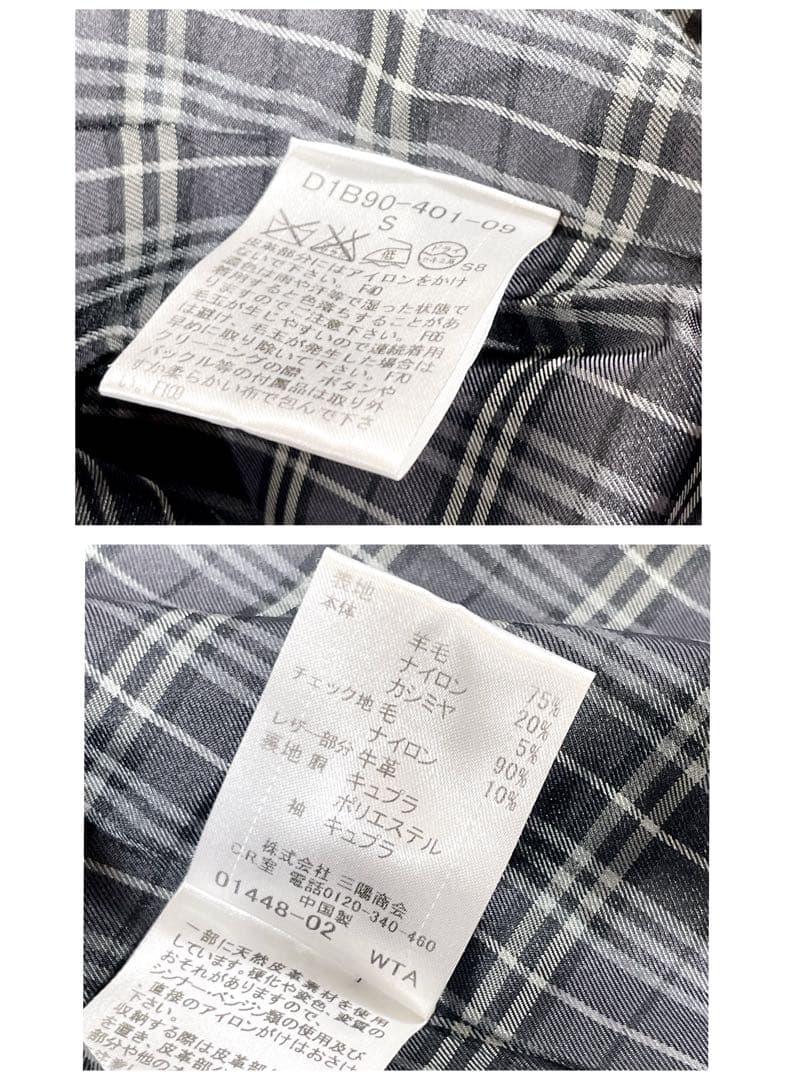 D1B90-401-09
S
低
ドライ
セキユ系
S8
皮革部分にはアイロンをかけ
ないで下さい。F40
着色は雨や汗等で湿った状態で
着用すると色落ちすることがあ
りますのでご注意下さい。F66
毛玉が生じやすいので連続着用
は避け、毛玉が発生した場合は
早めに取り除いて下さい。F70
クリーニングの際、ボタンや
バックル等の付属品は取り外
すか柔らかい布で包んで下さ
い。F100
表地
本体 羊毛 75%
ナイロン 20%
カシミヤ 5%
チェック地 毛 90%
ナイロン 10%
レザー部分 牛革
裏地 胴 キュプラ
ポリエステル
袖 キュプラ
株式会社 三陽商会
C.R.室 電話0120-340-460
中国製
01448-02
WTA
一部に天然皮革素材を使用
しています。硬化や変色、変質の
おそれがありますので、
シンナー・ベンジン類の使用及び
直接のアイロンがけはおさけ
下さい。
収納する際は皮革部
を置き、皮革部分
部分や他の